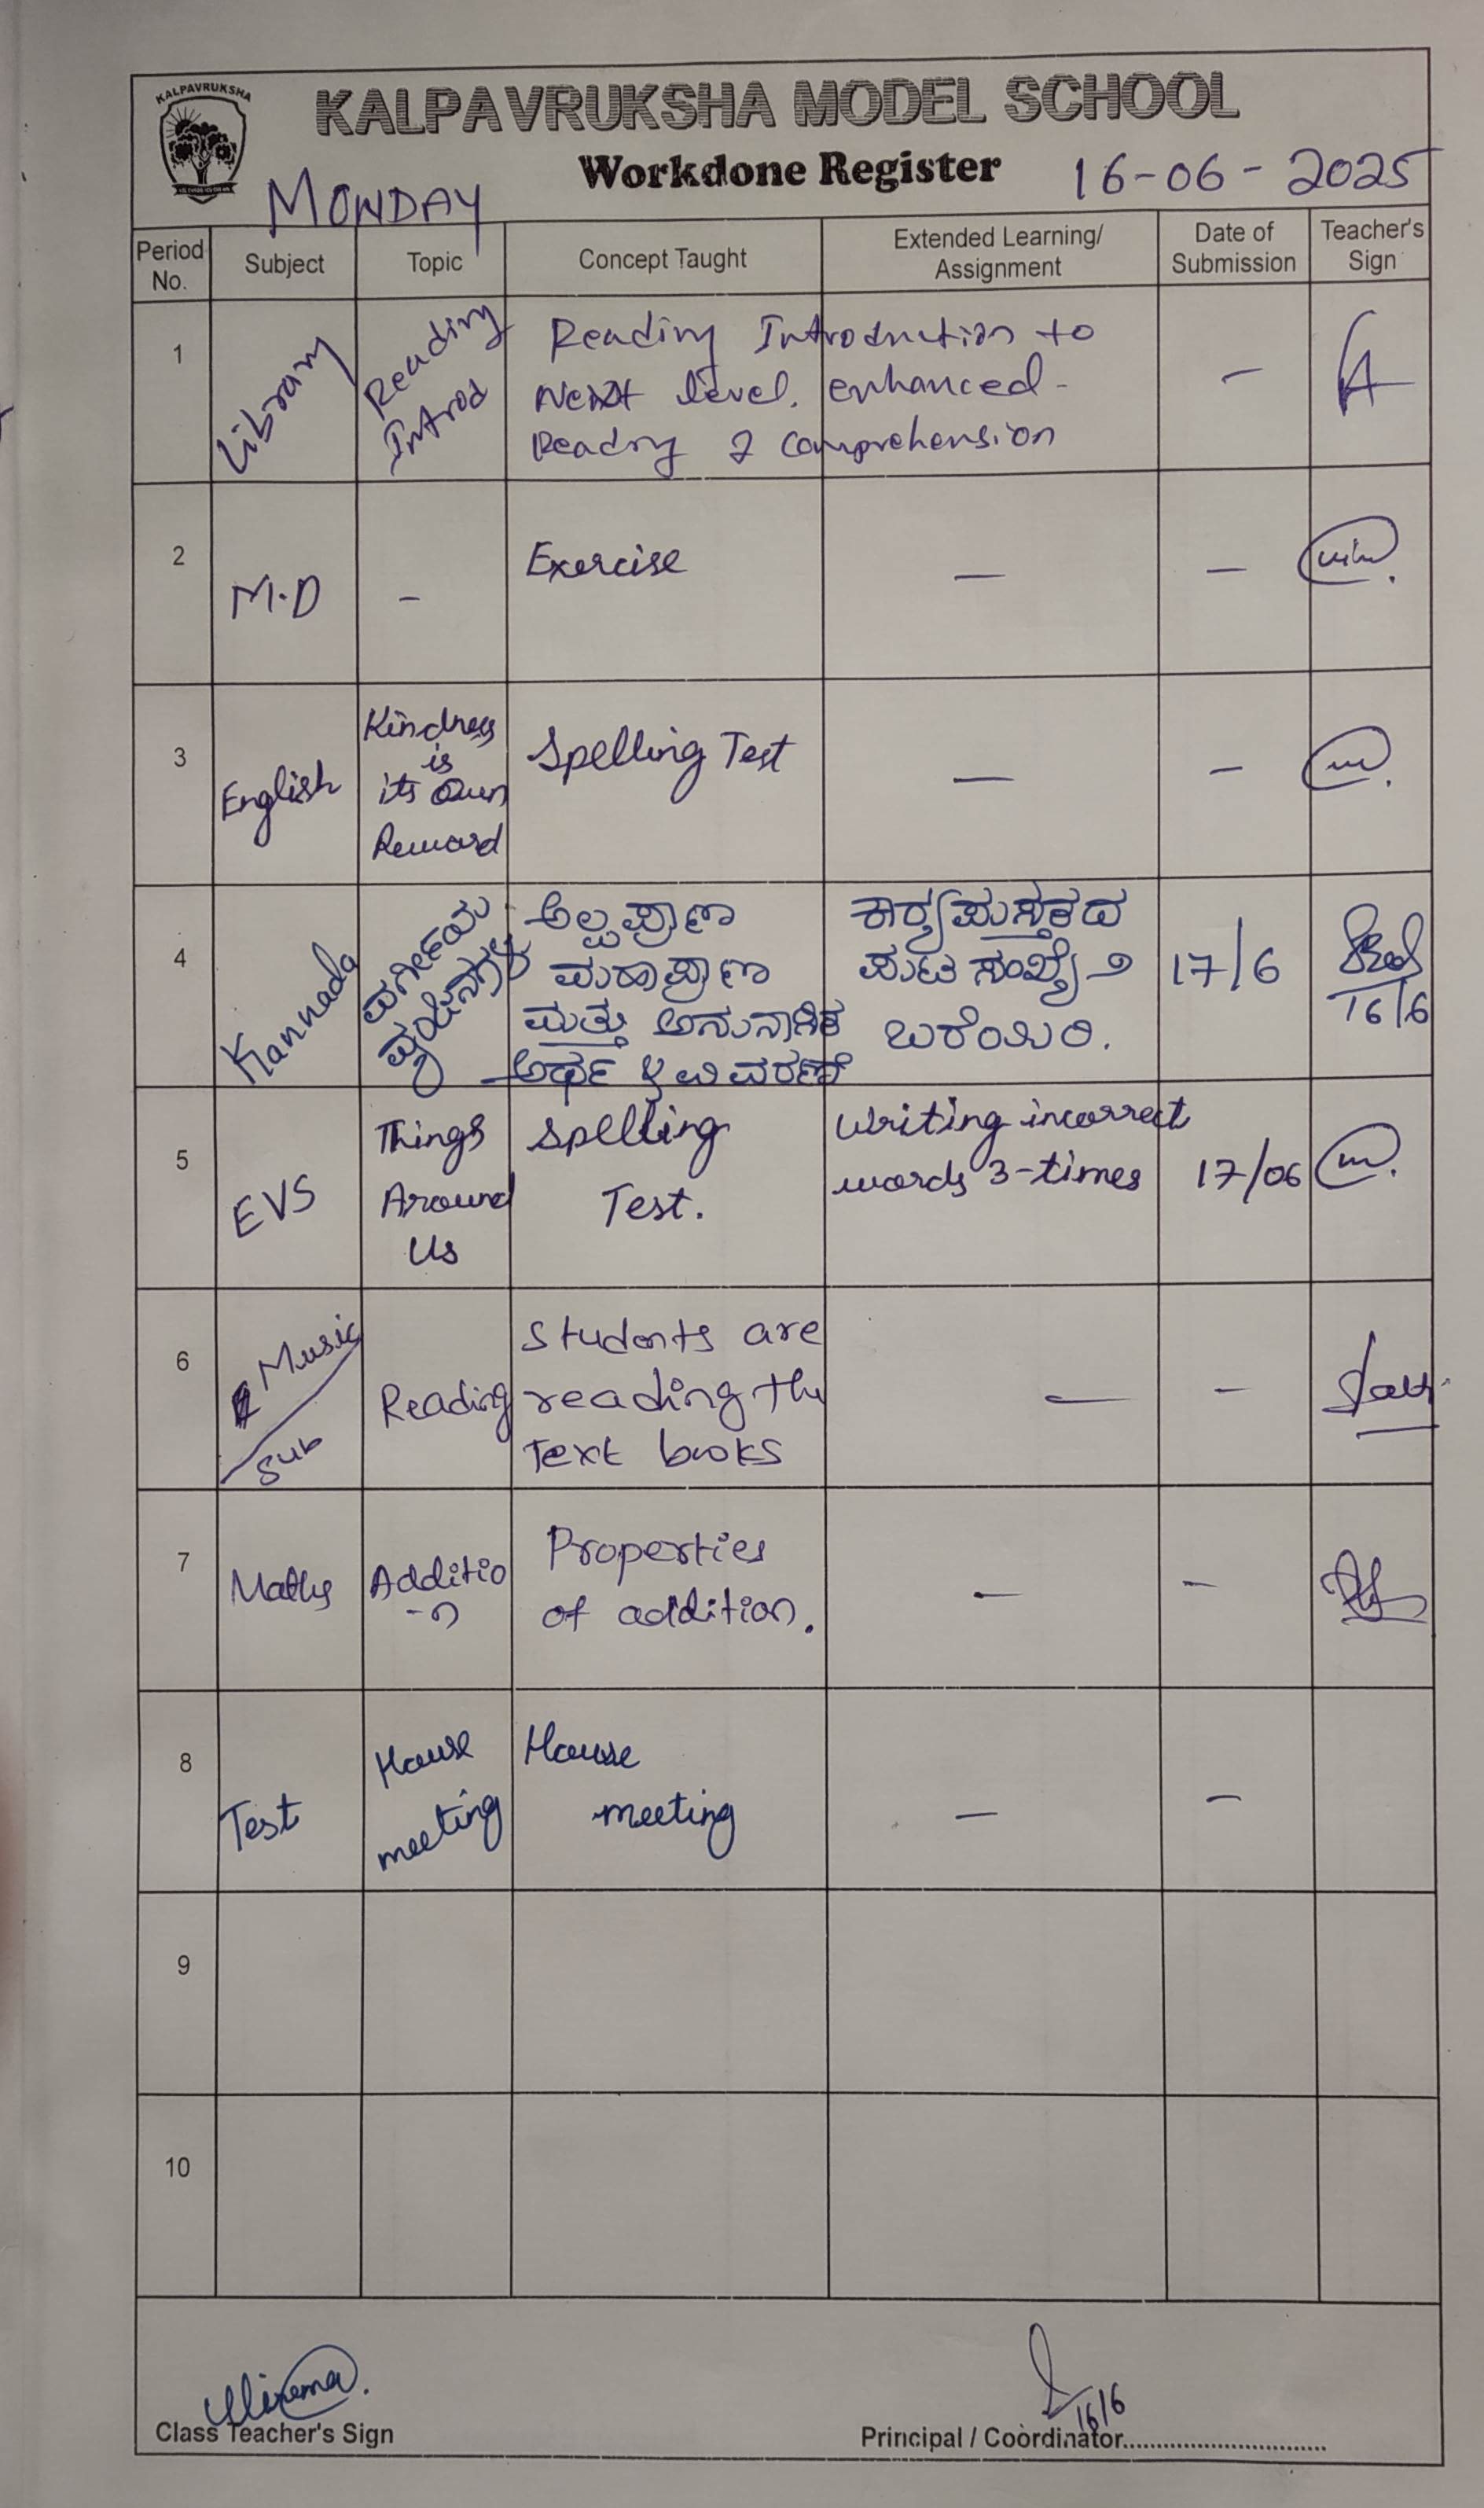 KALPAVRUKSHA
KALPAVRUKSHA MODEL SCHOOL
Workdone Register
MONDAY
16-06-2025
Period No.
Subject
Topic
Concept Taught
Extended Learning/ Assignment
Date of Submission
Teacher's Sign
1
Library
Reading
Introd
Reading Introduction to
Next level. enhanced-
Reading & comprehension
-
2
M.D
-
Exercise
-
-
3
English
Kindness
is
its Own
Reward
Spelling Test
-
-
4
Kannada
ವರ್ಗೀಯ
ವ್ಯಂಜನಗಳು
ಅಲ್ಪಪ್ರಾಣ
ಮಹಾಪ್ರಾಣ
ಮತ್ತು ಅನುನಾಸಿಕ
ಅರ್ಥ & ವಿವರಣೆ
ಕಾರ್ಯಪುಸ್ತಕದ
ಪುಟ ಸಂಖ್ಯೆ
ಬರೆಯಿರಿ.
17/6
16/6
5
EVS
Things
Around
Us
Spelling
Test.
Writing incorrect
words 3-times
17/06
6
Music
Sub
Reading
Students are
reading the
Text books
-
-
7
Maths
Additio
-n
Properties
of addition.
-
-
8
Test
House
meeting
House
meeting
-
-
9
10
Class Teacher's Sign
16/6
Principal / Coordinator..............................